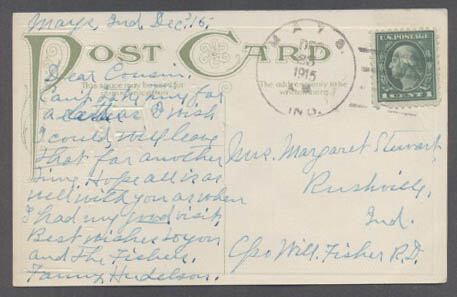 Mays, Ind. Dec. '15.
POST CARD
Dear Cousin.
This space may be used for
The address only to be
written here
for
a letter as I wish
I could, will leave
that for another
time. Hope all is as
well with you as when
I had my good visit
Best wishes to you
and The Fishers.
Fanny Hudelson.
MAYS.
DEC
1915
IND.
U.S. POSTAGE
1 CENT 1
Mrs. Margaret Stewart,
Rushville,
Ind.
C/o Will. Fisher R.D.